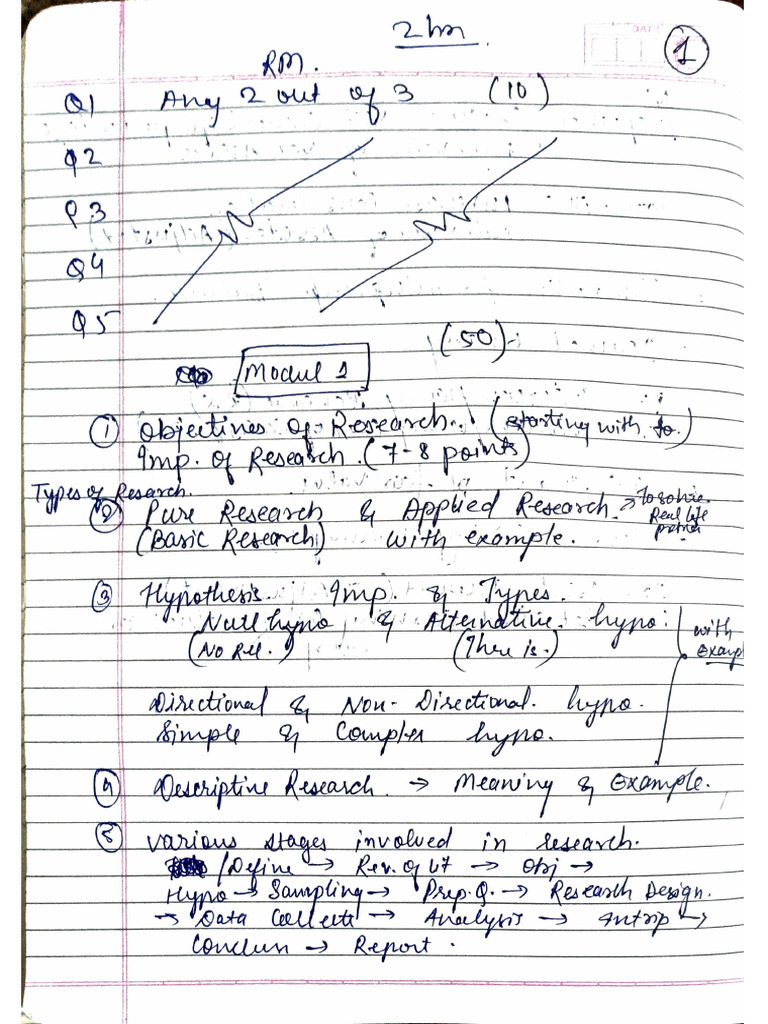 2 hr
1
RM.
Q1 Any 2 out of 3 (10)
Q2
Q3
Q4
Q5
(50)
Modul 1
① Objectives of Research. (starting with to.)
Imp. of Research. (7-8 points)
Types of Research.
② Pure Research & Applied Research. → To solve
Real life
(Basic Research) with example.
③ Hypothesis. Imp. & Types.
Null hypo & Alternative hypo:
(No Rel.) (There is.)
with
Examp
Directional & Non-Directional. hypo.
Simple & Complex hypo.
④ Descriptive Research. → Meaning & Example.
⑤ various stages involved in research.
/Define → Rev. of LT → Obj →
Hypo → Sampling → Prep. Q. → Research Design.
→ Data Collecti → Analysis → Intrip →
Conclusn → Report.